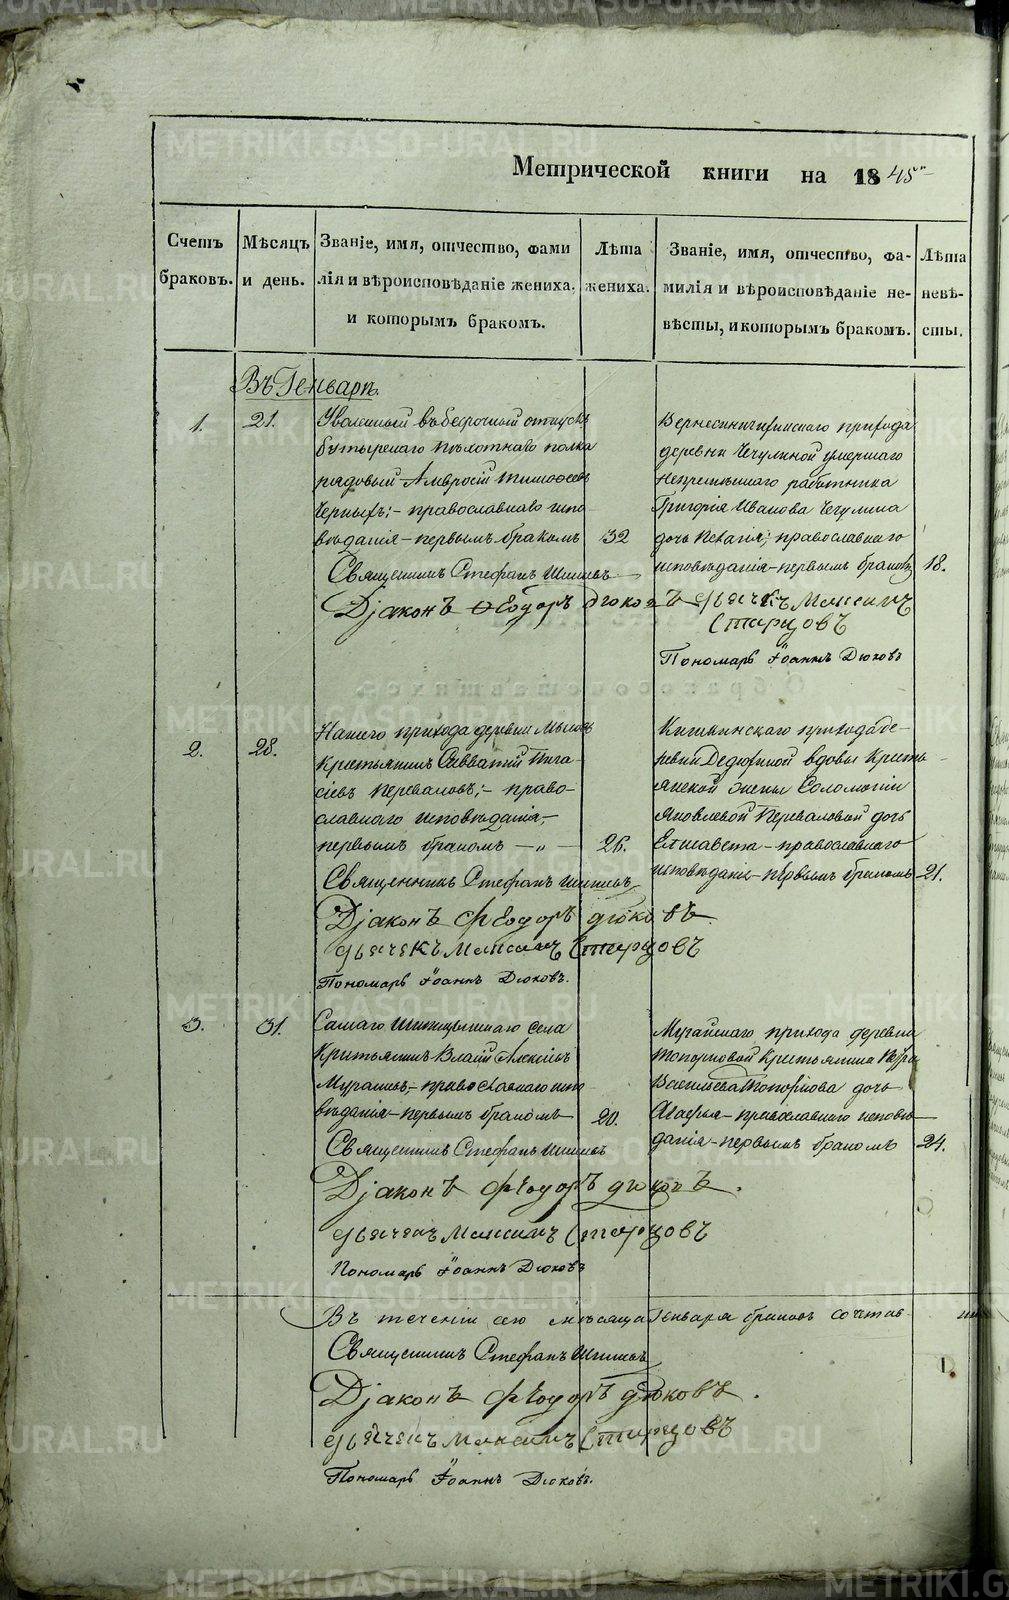 METRIKI.GASO-URAL.RU
Метрической книги на 1845
Счетъ браковъ.
Мѣсяцъ и день.
Званіе, имя, отчество, фамилія и вѣроисповѣданіе жениха, и которымъ бракомъ.
Лѣта жениха.
Званіе, имя, отчество, фамилія и вѣроисповѣданіе невѣсты, и которымъ бракомъ.
Лѣта невѣсты.
Въ Генварѣ.
1.
21.
Уволенный въ безсрочный отпускъ
Бутырскаго пѣхотнаго полка
рядовый Амвросій Тимофеевъ
Черныхъ;- православнаго испо-
вѣданія - первымъ бракомъ
32
Священникъ Стефанъ
Дjаконъ Ѳеодоръ Дюковъ
дьячекъ Максимъ
Старцовъ
Пономарь Іоаннъ Дюковъ
прихода
деревни Чечулиной умершаго
непремѣннаго работника
Григорія Иванова Чечулина
дочь Пелагія; православнаго
исповѣданія - первымъ бракомъ
18.
2.
28.
Нашего прихода деревни
Крестьянинъ Савватій
Переваловъ;- право-
славнаго исповѣданія,-
первымъ бракомъ -„-
26.
Священникъ Стефанъ
Дjаконъ Феодоръ Дюковъ
дьячекъ Максимъ Старцовъ
Пономарь Іоаннъ Дюковъ.
Кишкинскаго прихода де-
ревни Дедюхиной вдовы кресть-
янской жены Соломоніи
Яковлевой Переваловой дочь
Елисавета - православнаго
исповѣданія - первымъ бракомъ
21.
3.
31.
Самаго села
Крестьянинъ Власій Алексѣевъ
православнаго испо-
вѣданія - первымъ бракомъ
20.
Священникъ Стефанъ
Дjаконъ Феодоръ Дюковъ.
дьячекъ Максимъ Старцовъ
Пономарь Іоаннъ Дюковъ
прихода деревни
Топорковой Крестьянина Петра
Васильева Топоркова дочь
Агафья - православнаго исповѣ-
данія - первымъ бракомъ
24.
Въ теченіи сего мѣсяца Генваря браковъ сочетав-
Священникъ Стефанъ
Дjаконъ Феодоръ Дюковъ.
дьячекъ Максимъ Старцовъ
Пономарь Іоаннъ Дюковъ.